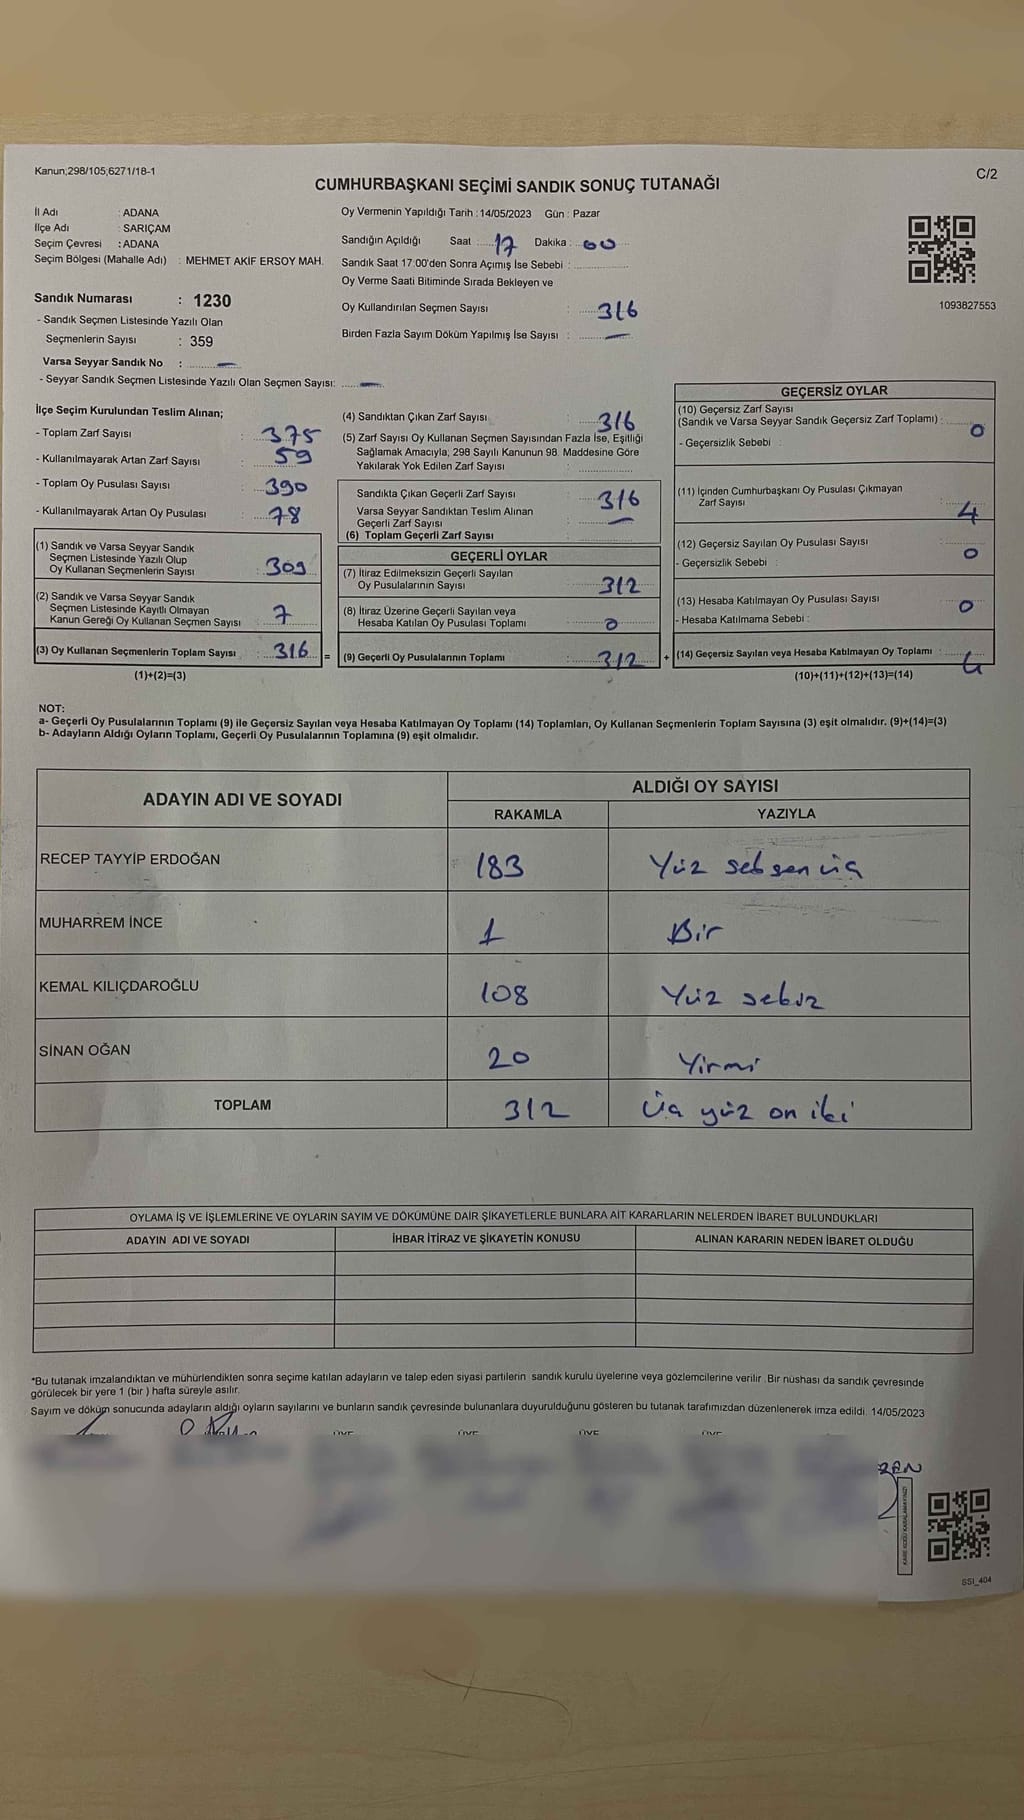 Kanun;298/105,6271/18-1
C/2
CUMHURBAŞKANI SEÇİMİ SANDIK SONUÇ TUTANAĞI
İl Adı : ADANA
İlçe Adı : SARIÇAM
Seçim Çevresi : ADANA
Seçim Bölgesi (Mahalle Adı) : MEHMET AKİF ERSOY MAH.
Oy Vermenin Yapıldığı Tarih : 14/05/2023 Gün : Pazar
Sandığın Açıldığı Saat : 17 Dakika : 00
Sandık Saat 17.00'den Sonra Açımış İse Sebebi :
Oy Verme Saati Bitiminde Sırada Bekleyen ve
Oy Kullandırılan Seçmen Sayısı : 316
Birden Fazla Sayım Döküm Yapılmış İse Sayısı : —
1093827553
Sandık Numarası : 1230
- Sandık Seçmen Listesinde Yazılı Olan
Seçmenlerin Sayısı : 359
Varsa Seyyar Sandık No : —
- Seyyar Sandık Seçmen Listesinde Yazılı Olan Seçmen Sayısı: —
İlçe Seçim Kurulundan Teslim Alınan;
- Toplam Zarf Sayısı : 375
- Kullanılmayarak Artan Zarf Sayısı : 59
- Toplam Oy Pusulası Sayısı : 390
- Kullanılmayarak Artan Oy Pusulası : 78
(1) Sandık ve Varsa Seyyar Sandık
Seçmen Listesinde Yazılı Olup
Oy Kullanan Seçmenlerin Sayısı : 309
(2) Sandık ve Varsa Seyyar Sandık
Seçmen Listesinde Kayıtlı Olmayan
Kanun Gereği Oy Kullanan Seçmen Sayısı : 7
(3) Oy Kullanan Seçmenlerin Toplam Sayısı : 316 =
(1)+(2)=(3)
(4) Sandıktan Çıkan Zarf Sayısı : 316
(5) Zarf Sayısı Oy Kullanan Seçmen Sayısından Fazla İse, Eşitliği
Sağlamak Amacıyla; 298 Sayılı Kanunun 98. Maddesine Göre
Yakılarak Yok Edilen Zarf Sayısı :
Sandıkta Çıkan Geçerli Zarf Sayısı : 316
Varsa Seyyar Sandıktan Teslim Alınan
Geçerli Zarf Sayısı : —
(6) Toplam Geçerli Zarf Sayısı :
GEÇERLİ OYLAR
(7) İtiraz Edilmeksizin Geçerli Sayılan
Oy Pusulalarının Sayısı : 312
(8) İtiraz Üzerine Geçerli Sayılan veya
Hesaba Katılan Oy Pusulası Toplamı : 0
(9) Geçerli Oy Pusulalarının Toplamı : 312 +
GEÇERSİZ OYLAR
(10) Geçersiz Zarf Sayısı
(Sandık ve Varsa Seyyar Sandık Geçersiz Zarf Toplamı) : 0
- Geçersizlik Sebebi :
(11) İçinden Cumhurbaşkanı Oy Pusulası Çıkmayan
Zarf Sayısı : 4
(12) Geçersiz Sayılan Oy Pusulası Sayısı : 0
- Geçersizlik Sebebi :
(13) Hesaba Katılmayan Oy Pusulası Sayısı : 0
- Hesaba Katılmama Sebebi :
(14) Geçersiz Sayılan veya Hesaba Katılmayan Oy Toplamı : 4
(10)+(11)+(12)+(13)=(14)
NOT:
a- Geçerli Oy Pusulalarının Toplamı (9) ile Geçersiz Sayılan veya Hesaba Katılmayan Oy Toplamı (14) Toplamları, Oy Kullanan Seçmenlerin Toplam Sayısına (3) eşit olmalıdır. (9)+(14)=(3)
b- Adayların Aldığı Oyların Toplamı, Geçerli Oy Pusulalarının Toplamına (9) eşit olmalıdır.
ADAYIN ADI VE SOYADI
ALDIĞI OY SAYISI
RAKAMLA YAZIYLA
RECEP TAYYİP ERDOĞAN 183 Yüz seksen üç
MUHARREM İNCE 1 Bir
KEMAL KILIÇDAROĞLU 108 Yüz sekiz
SİNAN OĞAN 20 Yirmi
TOPLAM 312 Üç yüz on iki
OYLAMA İŞ VE İŞLEMLERİNE VE OYLARIN SAYIM VE DÖKÜMÜNE DAİR ŞİKAYETLERLE BUNLARA AİT KARARLARIN NELERDEN İBARET BULUNDUKLARI
ADAYIN ADI VE SOYADI İHBAR İTİRAZ VE ŞİKAYETİN KONUSU ALINAN KARARIN NEDEN İBARET OLDUĞU
*Bu tutanak imzalandıktan ve mühürlendikten sonra seçime katılan adayların ve talep eden siyasi partilerin sandık kurulu üyelerine veya gözlemcilerine verilir .Bir nüshası da sandık çevresinde
görülecek bir yere 1 (bir ) hafta süreyle asılır.
Sayım ve döküm sonucunda adayların aldığı oyların sayılarını ve bunların sandık çevresinde bulunanlara duyurulduğunu gösteren bu tutanak tarafımızdan düzenlenerek imza edildi. 14/05/2023
ÜYE ÜYE ÜYE ÜYE
KARE KODU KARALAMAYINIZ!
SSI_404